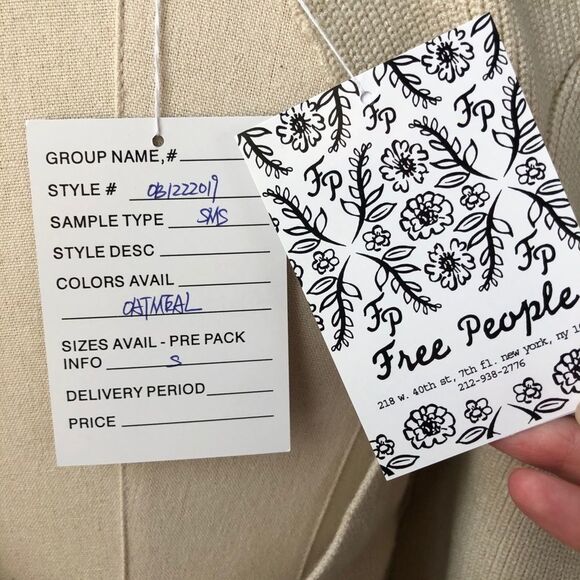 GROUP NAME,#
STYLE # OB1222019
SAMPLE TYPE SMS
STYLE DESC
COLORS AVAIL
OATMEAL
SIZES AVAIL - PRE PACK
INFO S
DELIVERY PERIOD
PRICE
FP
FP
FP
FP
FP
Free People
218 w. 40th st, 7th fl. new york, ny
212-938-2776